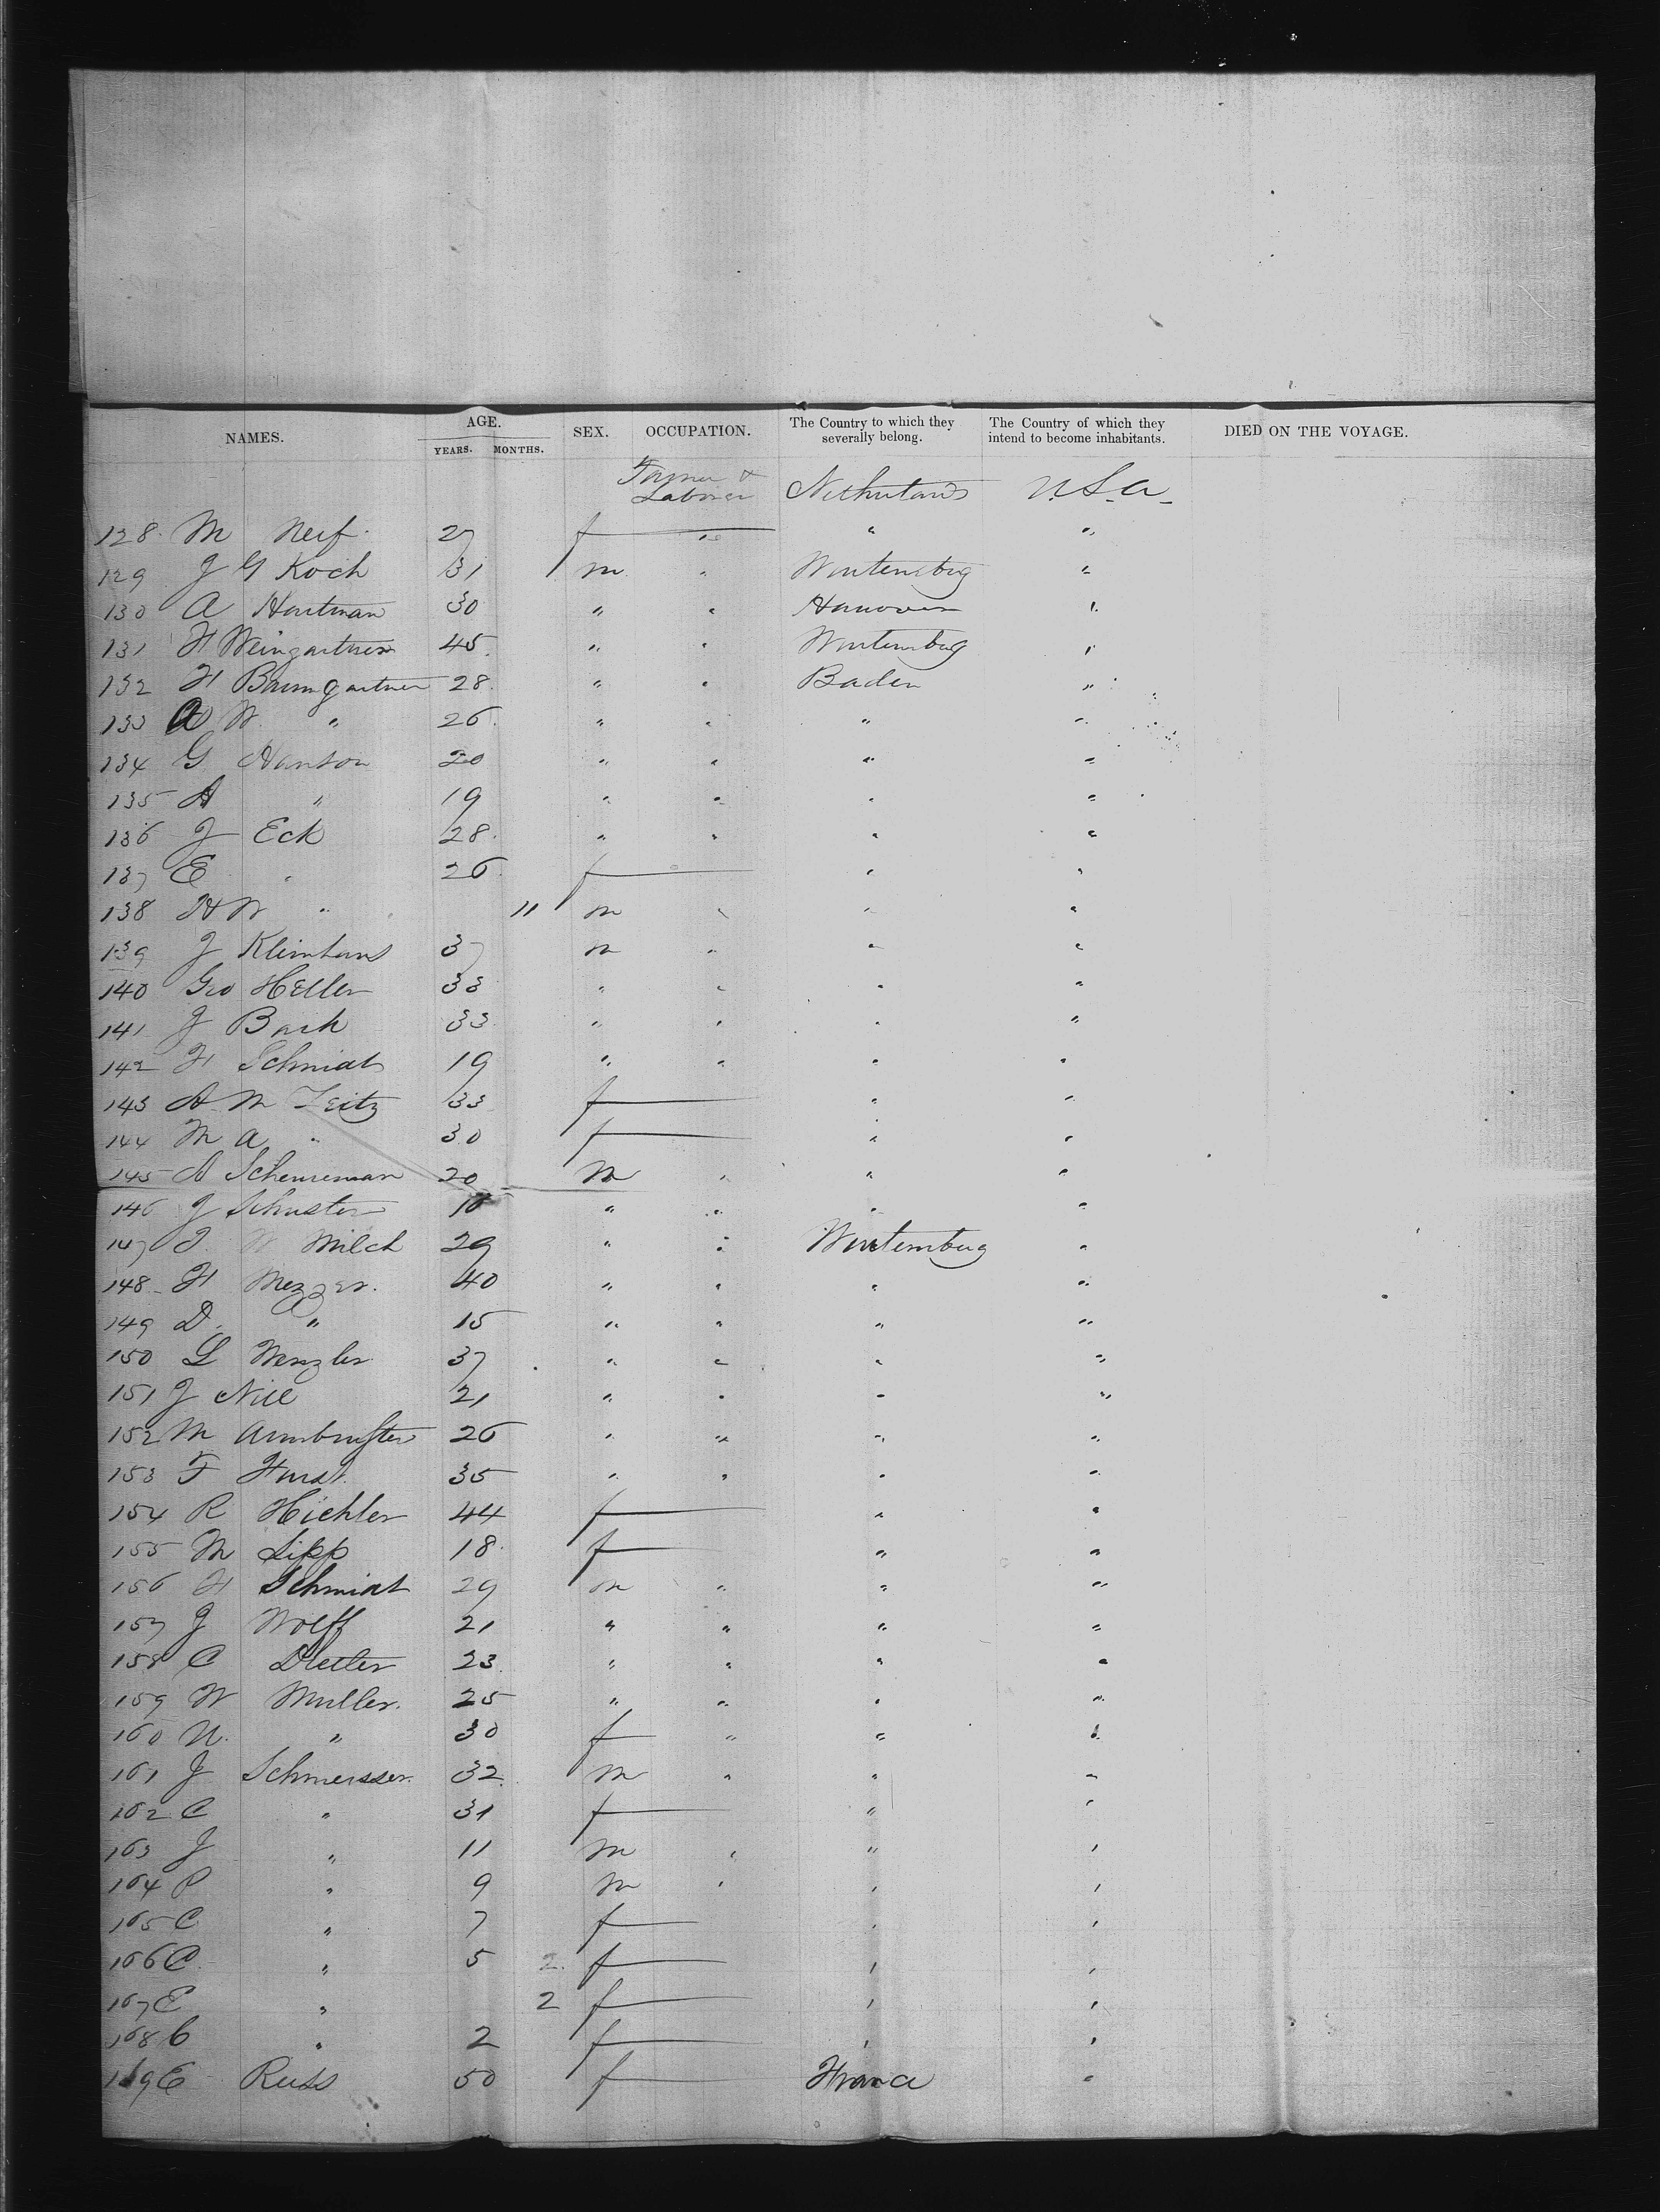 NAMES. AGE. SEX. OCCUPATION. The Country to which they severally belong. The Country of which they intend to become inhabitants. DIED ON THE VOYAGE.
YEARS. MONTHS.
Farmer & Laborer Netherlands U.S.A.
128. M Neuf. 27 f " " "
129 J G Koch 31 m " Wurtemburg "
130 A Hartman 30 " " Hanover "
131 H Weingartner 45. " " Wurtemburg "
132 H Baumgartner 28. " " Baden "
133 W " 26. " " " "
134 G Hanson 20 " " " "
135 A " 19 " " " "
136 J Eck 28. " " " "
137 E " 26. f " "
138 H W " 11 m " " "
139 J Kleinhans 37 m " " "
140 Geo Heller 33 " " " "
141 J Bach 33 " " " "
142 H Schmidt 19 " " " "
143 A. M Zeitz 33 f " "
144 M A " 30 f " "
145 A Scheureman 20 m " " "
146 J Schuster " " " "
147 J. W Milch 29 " " Wurtemburg "
148 H Mezger. 40 " " " "
149 D. " 15 " " " "
150 L Wenzler 37 " " " "
151 J Nill 21 " " " "
152 M Armbruster 26 " " " "
153 F Hurst. 35 " " " "
154 R Hichler 44 f " "
155 M Lipp 18. f " "
156 H Schmidt 29 m " " "
157 J Wolff 21 " " " "
158 C Dietler 23. " " " "
159 W Muller. 25 " " " "
160 N. " 30 f " " "
161 J Schmeisser. 32. m " " "
162 C " 31 f " "
163 J " 11 m " " "
164 P " 9 m " " "
165 C " 7 f " "
166 C. " 5 2. f " "
167 E " 2 f " "
168 C " 2 f " "
169 E Russ 50 f France "